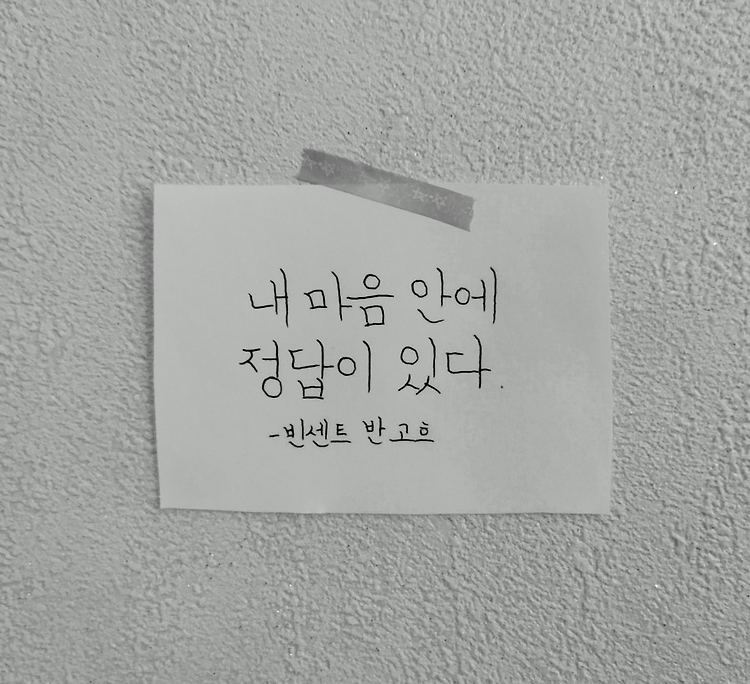 내 마음 안에
정답이 있다.
-빈센트 반 고흐